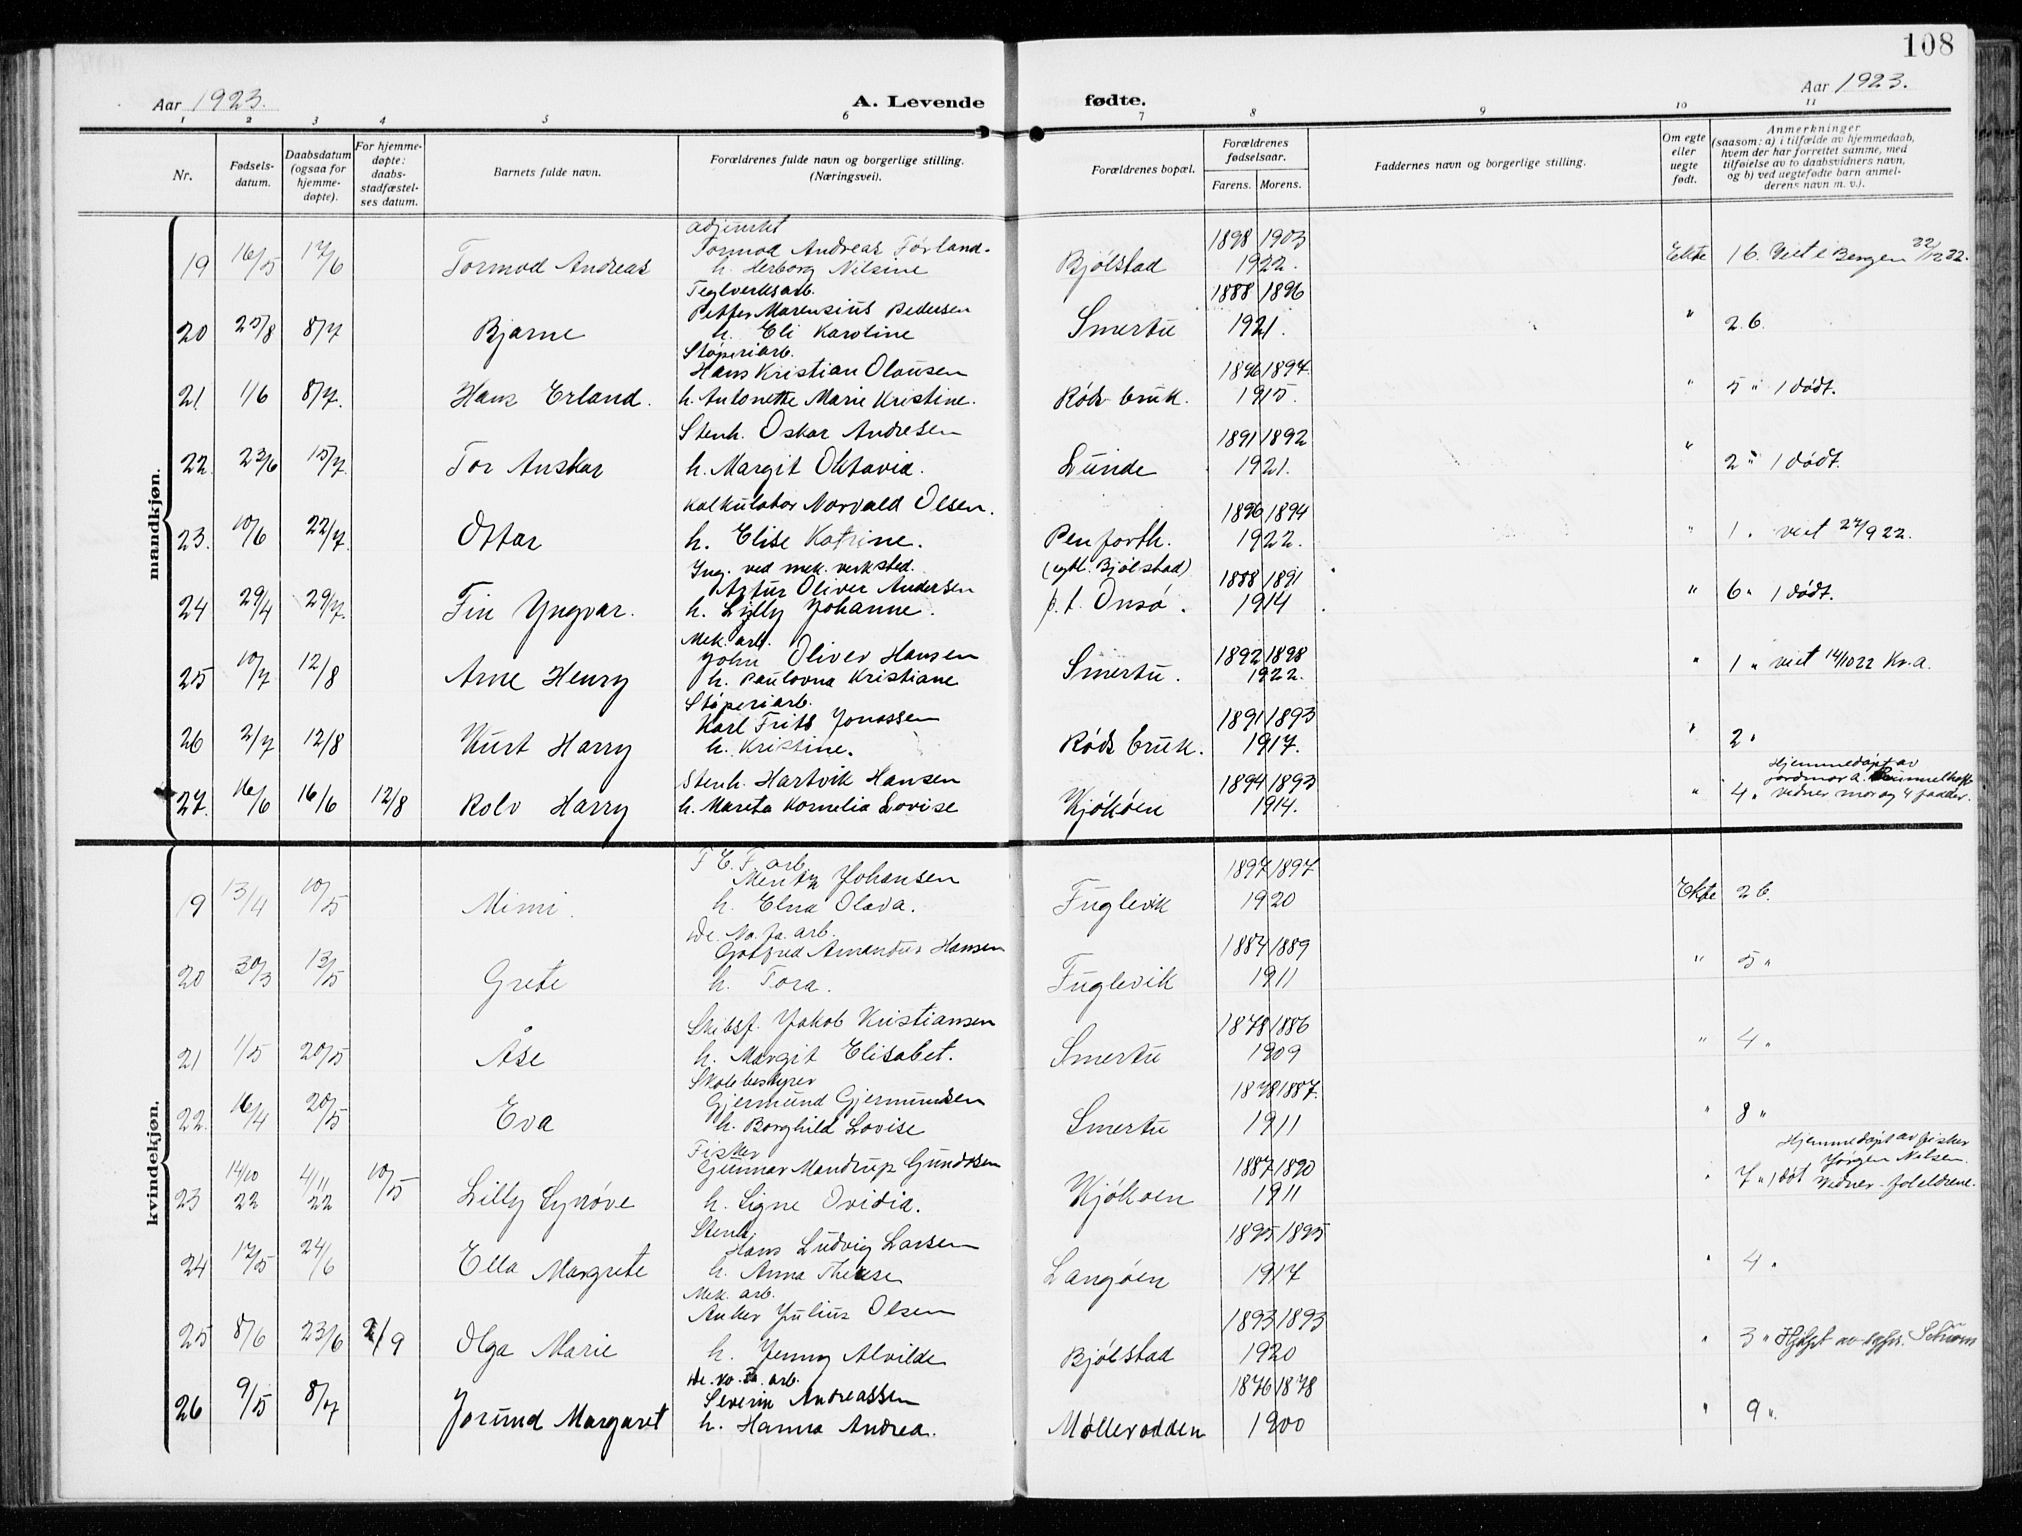 108
Aar 1923. A. Levende fødte. Aar 1923.
1 2 3 4 5 6 7 8 9 10 11
Nr. Fødsels-datum. Daabsdatum (ogsaa for hjemme-døpte). For hjemme-døpte: daabs-stadfæstel-ses datum. Barnets fulde navn. Forældrenes fulde navn og borgerlige stilling. (Næringsvei). Forældrenes bopæl. Forældrenes fødselsaar. Farens. Morens. Faddernes navn og borgerlige stilling. Om egte eller uegte født. Anmerkninger (saasom: a) i tilfælde av hjemmedaab, hvem der har forrettet samme, med tilføielse av to daabsvidners navn, og b) ved uegtefødte barn anmel-derens navn m. v.).
mandkjøn.
adjunkt
Tormod Andreas Førland. 1898 1903
19 16/5 17/6 Tormod Andreas h. Herborg Nilsine Bjølstad 1922. Ekte 1 b. Viet i Bergen 22/12 22.
Teglverksarb.
Petter Marensius Pedersen 1888 1896
20 25/8 8/7 Bjarne h. Eli Karoline Smertu 1921. " 2 b.
Støperiarb.
Hans Kristian Olausen 1896 1894
21 1/6 8/7. Hans Erland. h. Antonette Marie Kristine. Røds bruk. 1915. " 5 " 1 dødt.
Stenh. Oskar Andresen 1891 1892
22. 23/6 15/7 Tor Anskar h. Margit Oktavia. Lunde 1921. " 2 " 1 dødt.
Kalkulator Norvald Olsen. 1896 1894
23. 10/6 22/7 Ottar h. Elise Katrine. Penforth. 1922. " 1 " viet 27/9 22.
Ing. ved mek. verksted. (egtl. Bjølstad)
Artur Oliver Andersen 1888 1891
24 29/4 29/7. Fin Yngvar. h. Lilly Johanne. p.t. Onsø. 1914 " 6 " 1 dødt.
Mek. arb.
John Oliver Hansen 1892 1898
25 10/7 12/8 Arne Henry h. Paulovna Kristiane Smertu. 1922. " 1 " viet 14/10 22 Kr.a.
Støperiarb.
Karl Frits Jonassen 1891 1893
26 2/7 12/8 Kurt Harry h. Kristine. Røds bruk. 1917. " 2 "
Stenh. Hartvik Hansen 1894 1893 Hjemmedøpt av jordmor A.
27. 16/6 16/6 12/8 Rolv Harry h. Marita Kornelia Lovise Kjøkøen 1914. " 4 " vidner mor og 4 fadder.
kvindekjøn.
T. E. F. arb.
Johansen 1897 1897
19 13/4 10/5 Mimi. h. Elna Olava. Fuglevik 1920 Ekte 2 b.
De. No. fa. arb.
Gotfred Amandus Hansen 1887 1889
20 30/3 13/5 Grete h. Tora. Fuglevik 1911 " 5 "
Skibsf. Jakob Kristiansen 1878 1886
21 1/5 20/5 Åse h. Margit Elisabet. Smertu 1909 " 4 "
Skolebestyrer
Gjermund Gjermundsen 1878 1887.
22. 16/4 20/5 Eva h. Borghild Lovise Smertu 1911 " 8 "
Fisker Hjemmedøpt av fisker
Gunnar Mandrup Gundersen 1887 1890 Jørgen Nilsen.
23 14/10 22 4/11 22 10/5 Lilly Synøve h. Signe Ovidia. Kjøkøen 1911 " 7 " 1 døt Vidner foreldrene.
Stenh.
Hans Ludvig Larsen 1895 1895
24 17/5 24/6 Ella Margrete h. Anna Therese Langøen 1917 " 4 "
Mek. arb.
Anker Julius Olsen 1893 1893
25 8/6 23/6 2/9 Olga Marie h. Jenny Alvilde Bjølstad 1920 " 3 " Hjdpt av
De. No. Fa. arb.
Severin Andreassen 1876 1878
26 9/5 8/7 Jorund Margaret h. Hanna Andrea. Mølleroddden 1900 " 9 "